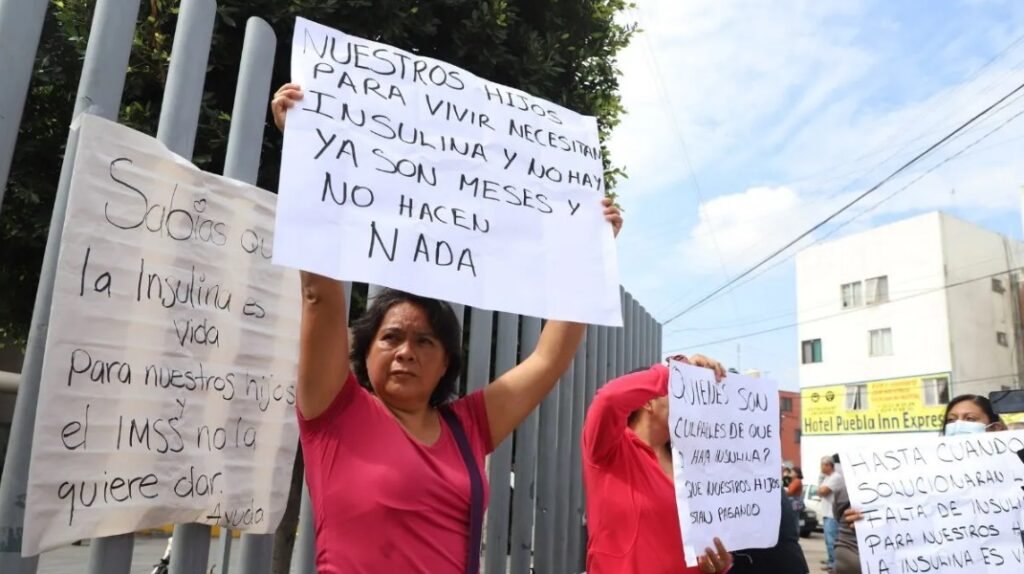 Sabias que
la Insulina es
vida
Para nuestros hijos
y
el IMSS no la
quiere dar.
Ayuda
NUESTROS HIJOS
PARA VIVIR NECESITAN
INSULINA Y NO HAY
YA SON MESES Y
NO HACEN
NADA
QUIENES SON
CULPABLES DE QUE
HAYA INSULILA?
QUE NUESTROS HIJOS
STAN PAGANDO
Hotel Puebla Inn Express
HASTA CUANDO
SOLUCIONARAN
FALTA DE INSULIN
PARA NUESTROS H
LA INSULINA ES V